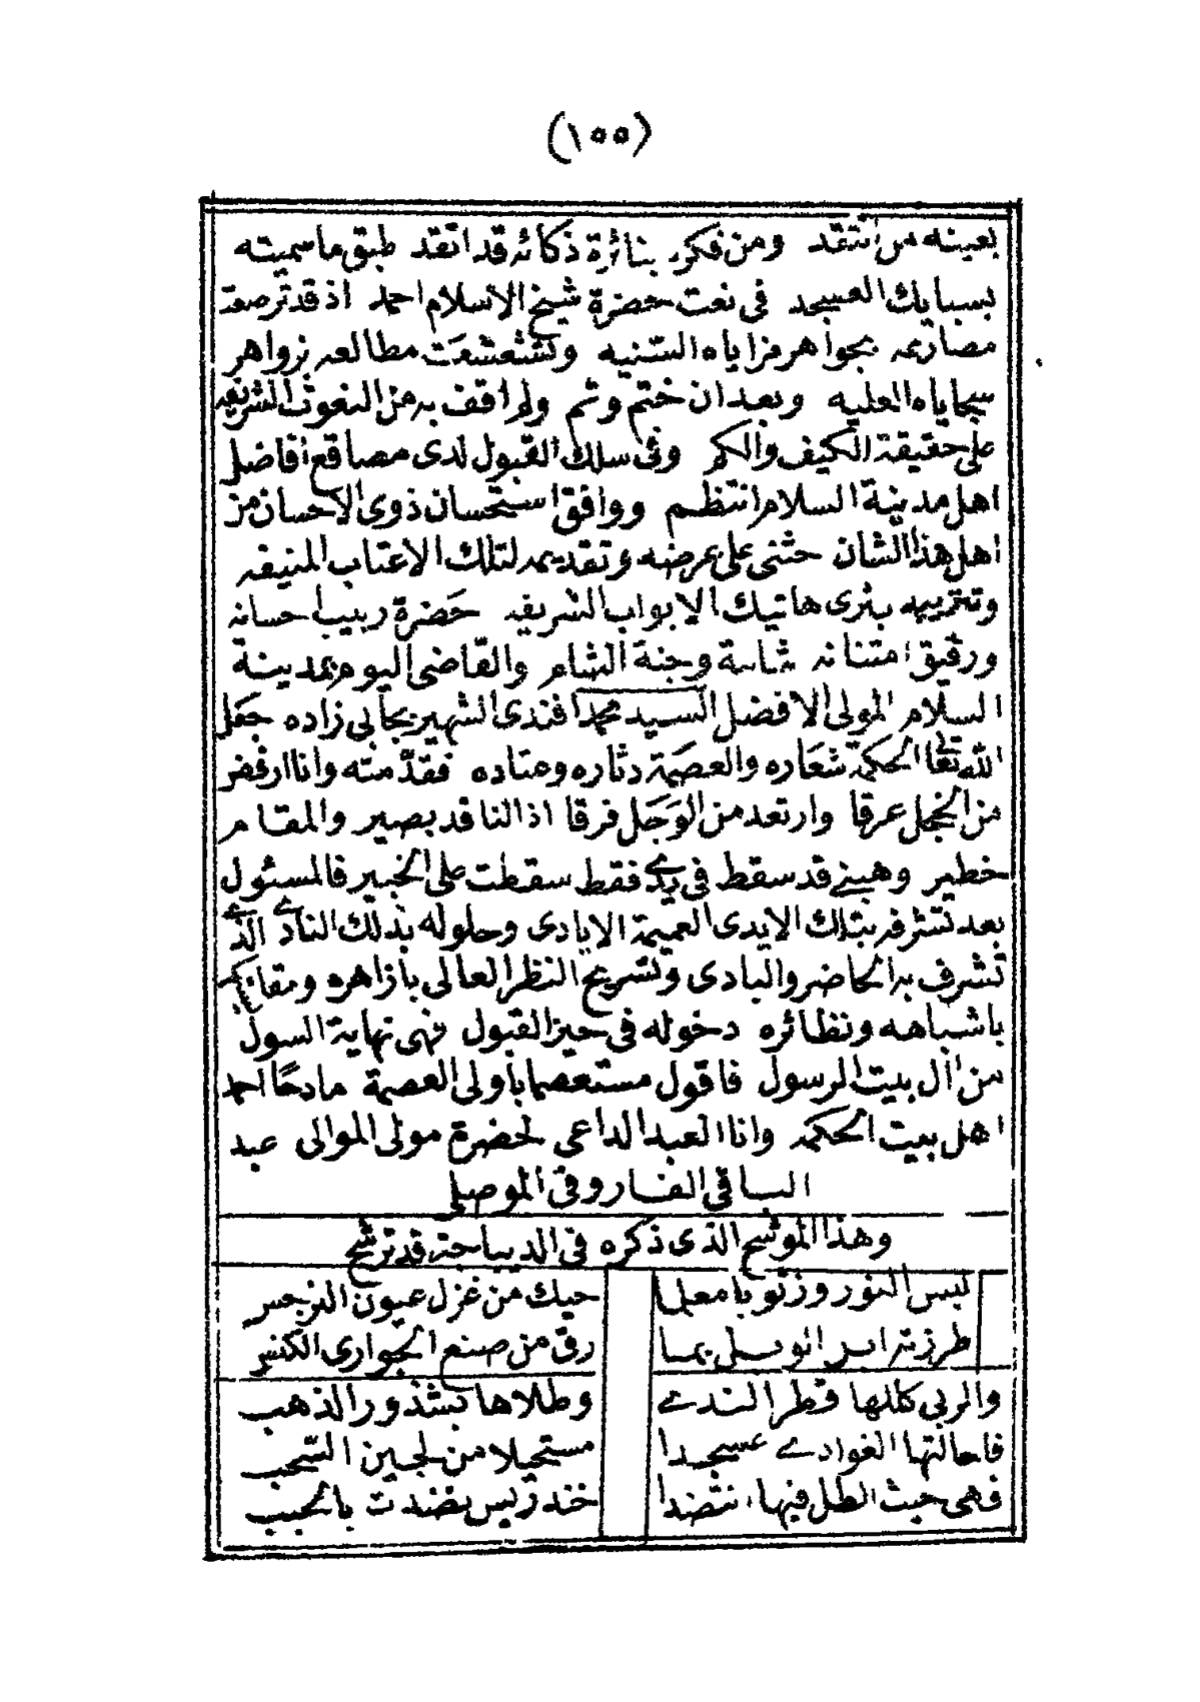 (١٥٥)
بعينه من انتقد ومن فكره بنائرة ذكائه قد اتقد طبق ما سميته
بسبايك العسجد في نعت حضرة شيخ الاسلام احمد اذ قد ترصعت
مصاريعه بجواهر مزاياه السنيه وتشعشعت مطالعه بزواهر
سجاياه العليه وبعد ان ختم وتم ولم اقف به من النعوت الشريفه
على حقيقة الكيف والكم وفي سلك القبول لدى مصاقع افاضل
اهل مدينة السلام انتظم ووافق استحسان ذوى الاحسان من
اهل هذا الشان حثنى على عرضه وتقديمه لتلك الاعتاب المنيفه
وتتريبه بثرى هاتيك الابواب الشريفه حضرة ربيب احسانه
ورقيق امتنانه شامة وجنة الشام والقاضى اليوم بمدينة
السلام المولى الافضل السيد محمد افندى الشهير بجابى زاده جعل
الله تعا الحكمة شعاره والعصمة دثاره وعتاده فقدمته وانا ارفض
من الخجل عرقا وارتعد من الوجل فرقا اذ الناقد بصير والمقام
خطير وهبنى قد سقط في يدى فقط سقطت على الخبير فالمسئول
بعد تشرفه بتلك الايدى العميمة الايادى وحلوله بذلك النادى الذى
تشرف به الحاضر والبادى وتسريح النظر العالى بازاهره
باشباهه ونظائره دخوله في حيز القبول فهى نهاية السول
من آل بيت الرسول فاقول مستعصما باولى العصمة مادحا احمد
اهل بيت الحكمه وانا العبد الداعى لحضرة مولى الموالى عبد
الباقى الفاروقى الموصلى
وهذا الموشح الذى ذكره في الديباجة قد ترشح
لبس النوروز ثوبا معلما حيك من غزل عيون النرجس
طرزته ابر الوبل بما رق من صنع الجوارى الكنس
والربى كللها قطر الندى وطلاها بشذور الذهب
فاحالتها الغوادى عسجدا مستحيلا من لجين السحب
فهى حيث الطل فيها انتضدا خندريس نضدت بالحبب